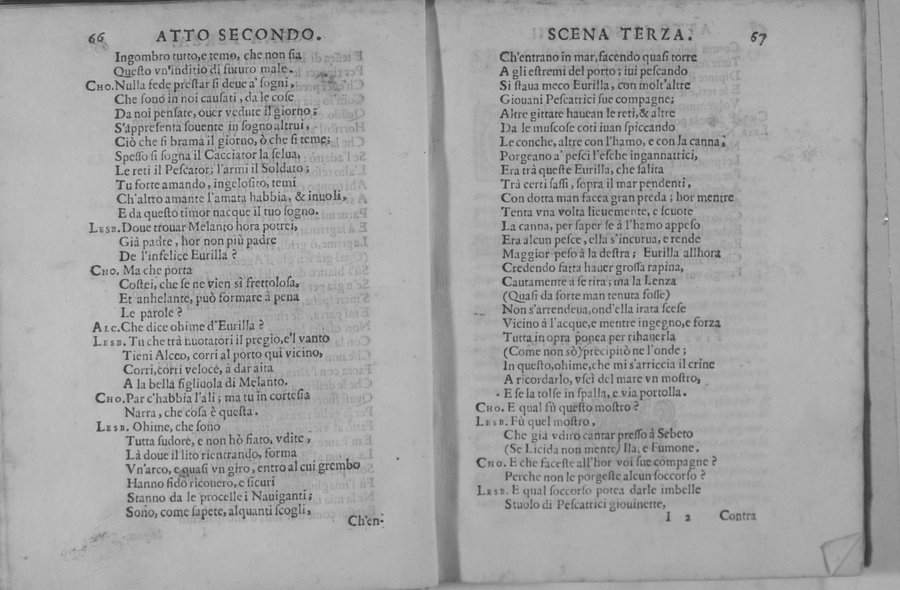 66 ATTO SECONDO.
Ingombro tutto,e temo, che non sia
Questo vn'inditio di futuro male.
CHO.Nulla fede prestar si deue a' sogni,
Che sono in noi causati, da le cose
Da noi pensate, ouer vedute il giorno;
S'appresenta souente in sogno altrui,
Ciò che si brama il giorno, ò che si teme;
Spesso si sogna il Cacciator la selua,
Le reti il Pescator; l'armi il Soldato;
Tu forte amando, ingelosito, temi
Ch'altro amante l'amata habbia, & inuoli,
E da questo timor nacque il tuo sogno.
LESB.Doue trouar Melanto hora potrei,
Già padre, hor non più padre
De l'infelice Eurilla ?
CHO. Ma che porta
Costei, che se ne vien sì frettolosa,
Et anhelante, può formare à pena
Le parole ?
ALC.Che dice ohime d'Eurilla ?
LESB.Tu che trà nuotatori il pregio,e'l vanto
Tieni Alceo, corri al porto quì vicino,
Corri,corri veloce, à dar aita
A la bella figliuola di Melanto.
CHO.Par c'habbia l'ali; ma tu in cortesia
Narra, che cosa è questa.
LESB. Ohime, che sono
Tutta sudore, e non hò fiato, vdite,
Là doue il lito rientrando, forma
Vn'arco, e quasi vn giro, entro al cui grembo
Hanno fido ricouero, e sicuri
Stanno da le procelle i Nauiganti;
Sono, come sapete, alquanti scogli,
Ch'en-
SCENA TERZA. 67
Ch'entrano in mar,facendo quasi torre
A gli estremi del porto; iui pescando
Si staua meco Eurilla, con molt'altre
Giouani Pescatrici sue compagne;
Altre gittate hauean le reti,& altre
Da le muscose coti iuan spiccando
Le conche, altre con l'hamo, e con la canna,
Porgeano a' pesci l'esche ingannatrici,
Era trà queste Eurilla, che salita
Trà certi sassi, sopra il mar pendenti,
Con dotta man facea gran preda; hor mentre
Tenta vna volta lieuemente, e scuote
La canna, per saper se à l'hamo appeso
Era alcun pesce, ella s'incurua, e rende
Maggior peso à la destra; Eurilla allhora
Credendo fatta hauer grossa rapina,
Cautamente à se tira; ma la Lenza
(Quasi da forte man tenuta fosse)
Non s'arrendeua,ond'ella irata scese
Vicino à l'acque,e mentre ingegno,e forza
Tutta in opra ponea per rihauerla
(Come non sò)precipitò ne l'onde;
In questo,ohime,che mi s'arriccia il crine
A ricordarlo, vscì del mare vn mostro,
E se la tolse in spalla, e via portolla.
CHO. E qual fù questo mostro ?
LESB. Fù quel mostro,
Che già vdiro cantar presso à Sebeto
(Se Licida non mente) Ila, e Fumone.
CHO. E che faceste all'hor voi sue compagne ?
Perche non le porgeste alcun soccorso ?
LESB. E qual soccorso potea darle imbelle
Stuolo di Pescatrici giouinette,
I 2 Contra